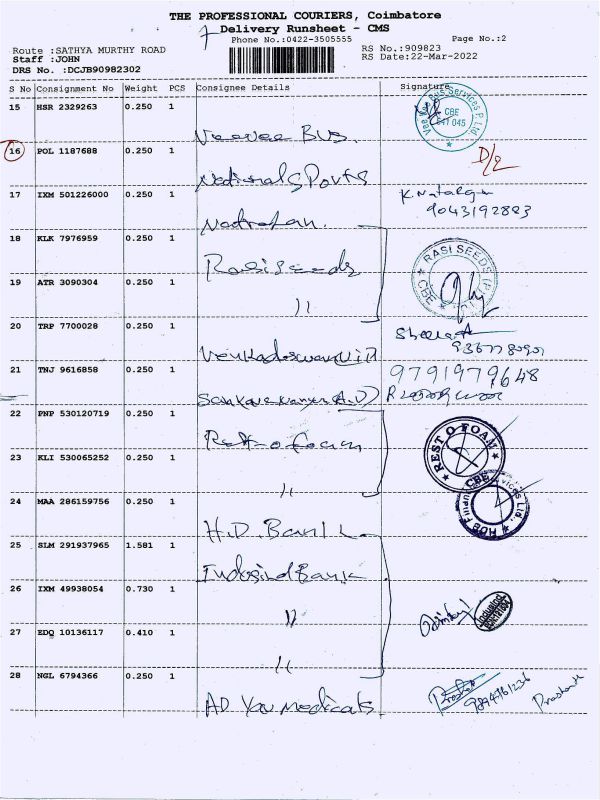 THE PROFESSIONAL COURIERS, Coimbatore
7 Delivery Runsheet - CMS
Phone No.:0422-3505555
Page No.:2
Route :SATHYA MURTHY ROAD
RS No.:909823
Staff :JOHN
RS Date:22-Mar-2022
DRS No. :DCJB90982302
S No Consignment No Weight PCS Consignee Details Signature
15 HSR 2329263 0.250 1
Veevee Bus.
Vee Vee Bus Services P. Ltd
CBE
641 045
16 POL 1187688 0.250 1
National Sports
D/2
17 IXM 501226000 0.250 1
Natrajan.
9043192883
18 KLK 7976959 0.250 1
Rasi seeds
RASI SEEDS (P)
CBE
19 ATR 3090304 0.250 1
"
20 TRP 7700028 0.250 1
21 TNJ 9616858 0.250 1
9791979648
22 PNP 530120719 0.250 1
Rest o foam
REST O FOAM
CBE
23 KLI 530065252 0.250 1
"
24 MAA 286159756 0.250 1
H.D. Bank
25 SLM 291937965 1.581 1
Indusind Bank
26 IXM 49938054 0.730 1
"
27 EDQ 10136117 0.410 1
"
IndusInd
28 NGL 6794366 0.250 1
AD You medicals
9894761236
Prashanth